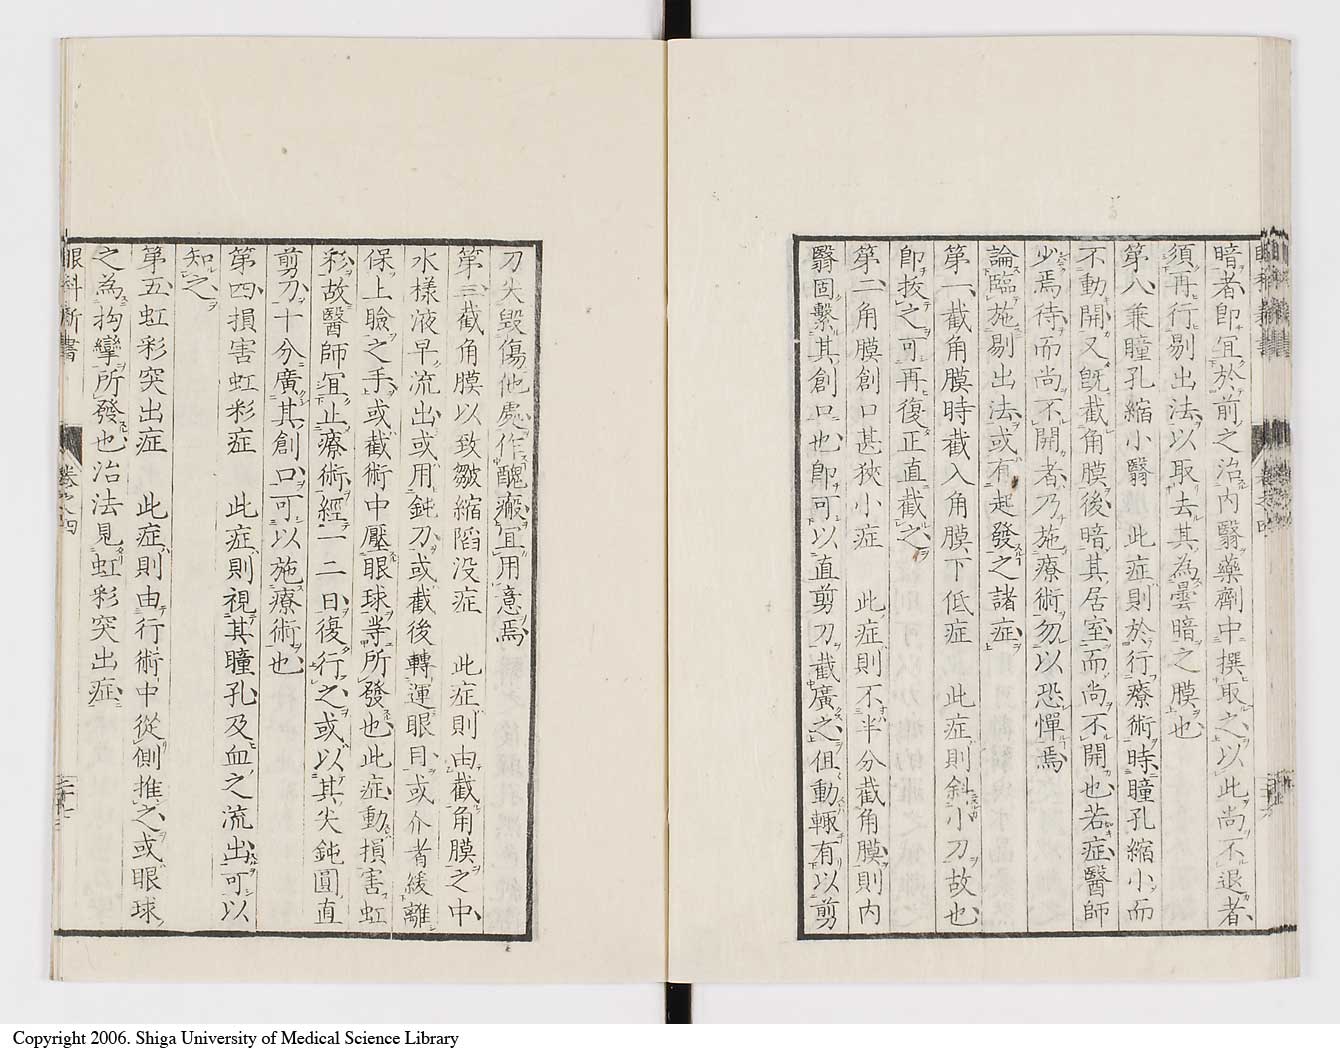 暗者即宜於前之治内翳藥劑中撰取之以此尚不退者
須再行剔出法以取去其為曇暗之膜也
第八兼瞳孔縮小翳　此症則於行療術時瞳孔縮小而
不動開又既截角膜後暗其居室而尚不開也若症醫師
少焉待而尚不開者乃施療術勿以恐憚焉
論臨施剔出法或有起發之諸症
第一截角膜時截入角膜下低症　此症則斜小刀故也
即抜之可再復正直截之
第二角膜創口甚狹小症　此症則不半分截角膜則内
翳固繫其創口也即可以直剪刀截廣之但動輙有以剪
刀尖毀傷他處作醜瘢宜用意焉
第三截角膜以致皺縮陷没症　此症則由截角膜之中
水様液早流出或用鈍刀或截後轉運眼目或介者緩離
保上瞼之手或截術中壓眼球等所發也此症動損害虹
彩故醫師宜止療術經一二日復行之或以其尖鈍圓直
剪刀十分廣其創口可以施療術也
第四損害虹彩症　此症則視其瞳孔及血之流出可以
知之
第五虹彩突出症　此症則由行術中從側推之或眼球
之為拘攣所發也治法見虹彩突出症
眼科新書
卷之四
二十七
Copyright 2006. Shiga University of Medical Science Library